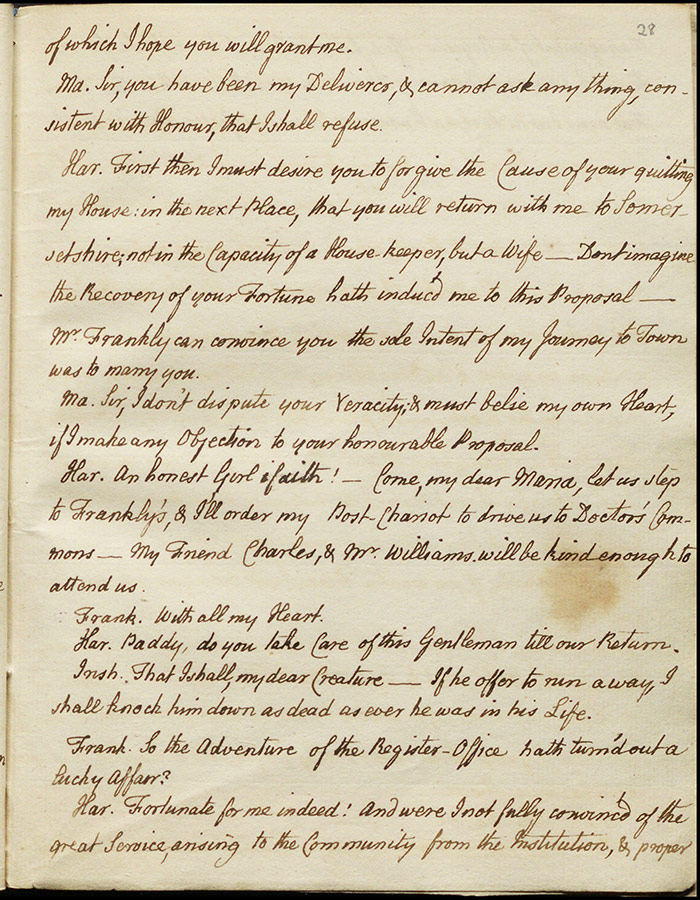 28
of which I hope you will grant me.
Ma. Sir, you have been my Deliverer, & cannot ask any thing, con-
sistent with Honour, that I shall refuse.
Har. First then I must desire you to forgive the Cause of your quitting
my House: in the next Place, that you will return with me to Somer-
setshire; not in the Capacity of a House-keeper, but a Wife — Dont imagine
the Recovery of your Fortune hath induc'd me to this Proposal —
Mr. Frankly can convince you the sole Intent of my Journey to Town
was to marry you.
Ma. Sir, I don't dispute your Veracity; & must belie my own Heart,
if I make any Objection to your honourable Proposal.
Har. An honest Girl ifaith! — Come, my dear Maria, let us step
to Frankly's, & I'll order my Post-Chariot to drive us to Doctor's Com-
mons — My Friend Charles, & Mr. Williams will be kind enough to
attend us.
Frank. With all my Heart.
Har. Paddy, do you take Care of this Gentleman till our Return.
Irish. That I shall, my dear Creature — If he offer to run away, I
shall knock him down as dead as ever he was in his Life.
Frank. So the Adventure of the Register-Office hath turn'd out a
lucky Affair?
Har. Fortunate for me indeed! And were I not fully convinc'd of the
great Service, arising to the Community from the Institution, & proper